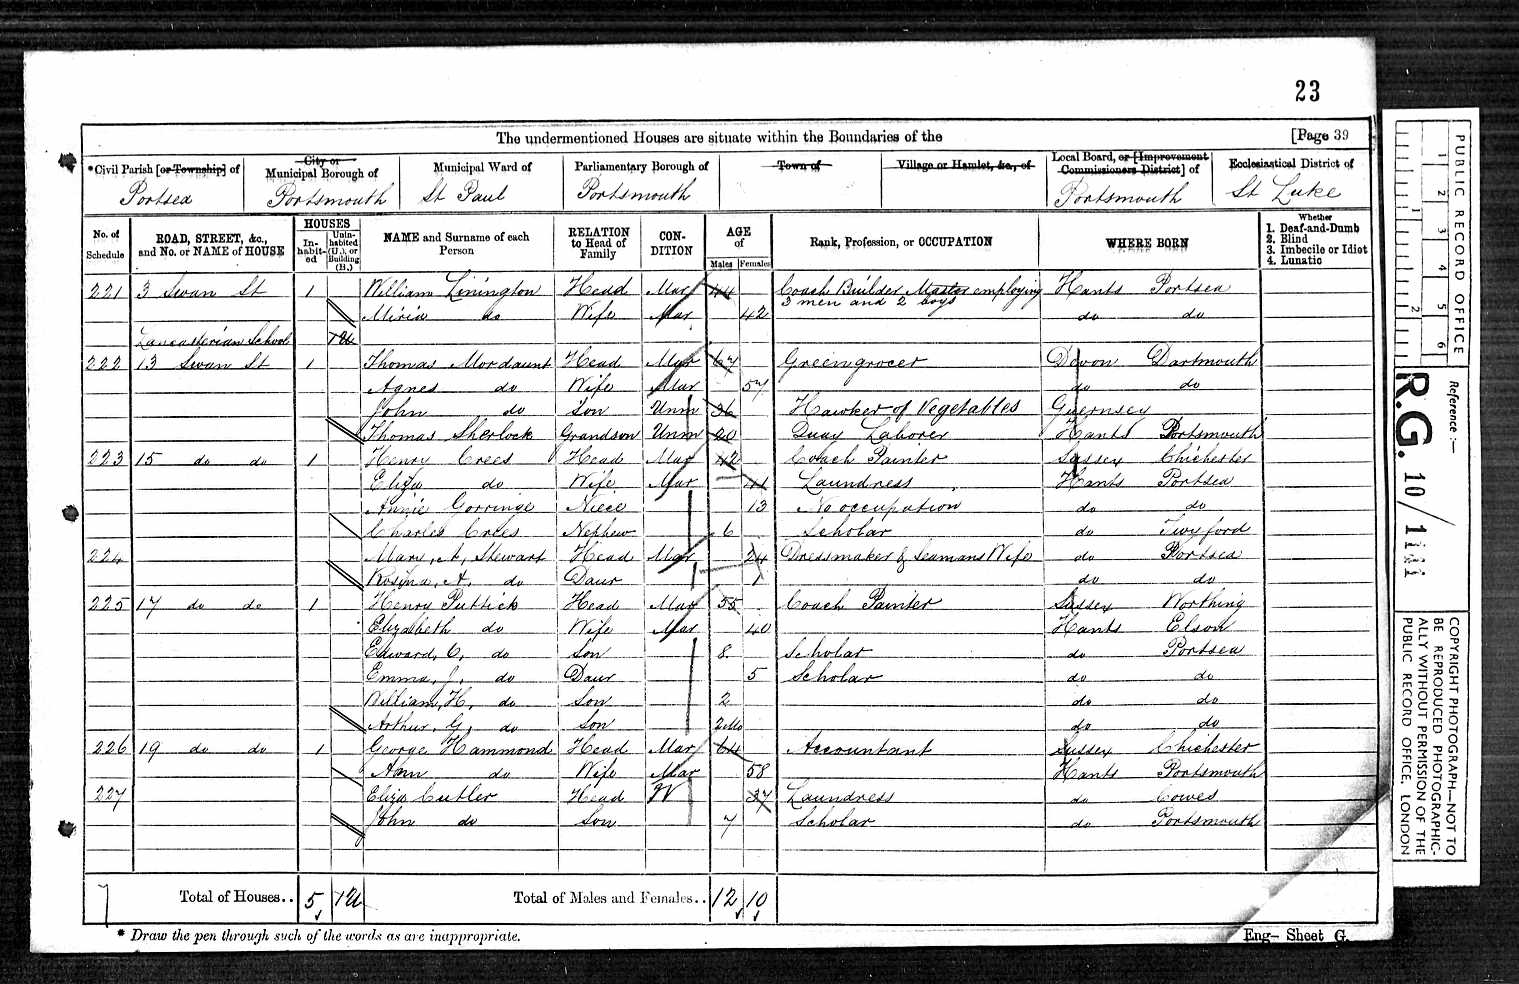 23
The undermentioned Houses are situate within the Boundaries of the [Page 39
*Civil Parish [or Township] of City or Municipal Borough of Municipal Ward of Parliamentary Borough of Town of Village or Hamlet, &c., of Local Board, or [Improvement Commissioners District] of Ecclesiastical District of
Portsea Portsmouth St Paul Portsmouth Portsmouth St Luke
No. of Schedule ROAD, STREET, &c., and No. or NAME of HOUSE HOUSES In-habit-ed Unin-habited (U.), or Building (B.) NAME and Surname of each Person RELATION to Head of Family CON-DITION AGE of Males Females Rank, Profession, or OCCUPATION WHERE BORN Whether 1. Deaf-and-Dumb 2. Blind 3. Imbecile or Idiot 4. Lunatic
221 3 Swan St 1 William Linington Head Mar 44 Coach Builder Master employing 3 men and 2 boys Hants Portsea
Miria do Wife Mar 42 do do
Lancasterian School 1U
222 13 Swan St 1 Thomas Mordaunt Head Mar 67 Greengrocer Devon Dartmouth
Agnes do Wife Mar 57 do do
John do Son Unm 36 Hawker of Vegetables Guernsey
Thomas Sherlock Grandson Unm 20 Quay Laborer Hants Portsmouth
223 15 do do 1 Henry Crees Head Mar 42 Coach Painter Sussex Chichester
Eliza do Wife Mar 41 Laundress Hants Portsea
Annie Gorringe Niece 13 No occupation do do
Charles Crees Nephew 6 Scholar do Twyford
224 Mary, A, Stewart Head Mar 24 Dressmaker & Seamans Wife do Portsea
Rosina, A, do Daur 1 do do
225 17 do do 1 Henry Puttick Head Mar 55 Coach Painter Sussex Worthing
Elizabeth do Wife Mar 40 Hants Elson
Edward, C, do Son 8 Scholar do Portsea
Emma, J, do Daur 5 Scholar do do
William, H, do Son 2 do do
Arthur, G, do Son 2 Mo do do
226 19 do do 1 George Hammond Head Mar 64 Accountant Sussex Chichester
Ann do Wife Mar 58 Hants Portsmouth
227 Eliza Cutler Head W 37 Laundress do Cowes
John do Son 7 Scholar do Portsmouth
7 Total of Houses.. 5 1U Total of Males and Females.. 12 10
* Draw the pen through such of the words as are inappropriate.
Eng- Sheet G.
PUBLIC RECORD OFFICE
1 2 3 4 5 6
1 2
Reference :-
R.G. 10/1141
COPYRIGHT PHOTOGRAPH-NOT TO
BE REPRODUCED PHOTOGRAPHIC-
ALLY WITHOUT PERMISSION OF THE
PUBLIC RECORD OFFICE, LONDON